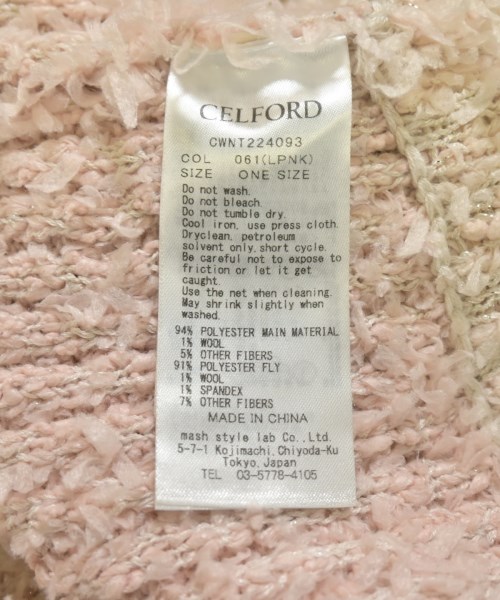 CELFORD
CWNT224093
COL 061(LPNK)
SIZE ONE SIZE
Do not wash.
Do not bleach.
Do not tumble dry.
Cool iron, use press cloth.
Dryclean, petroleum
solvent only, short cycle.
Be careful not to expose to
friction or let it get
caught.
Use the net when cleaning.
May shrink slightly when
washed.
94% POLYESTER MAIN MATERIAL
1% WOOL
5% OTHER FIBERS
91% POLYESTER FLY
1% WOOL
1% SPANDEX
7% OTHER FIBERS
MADE IN CHINA
mash style lab Co., Ltd.
5-7-1 Kojimachi, Chiyoda-Ku
Tokyo, Japan
TEL 03-5778-4105